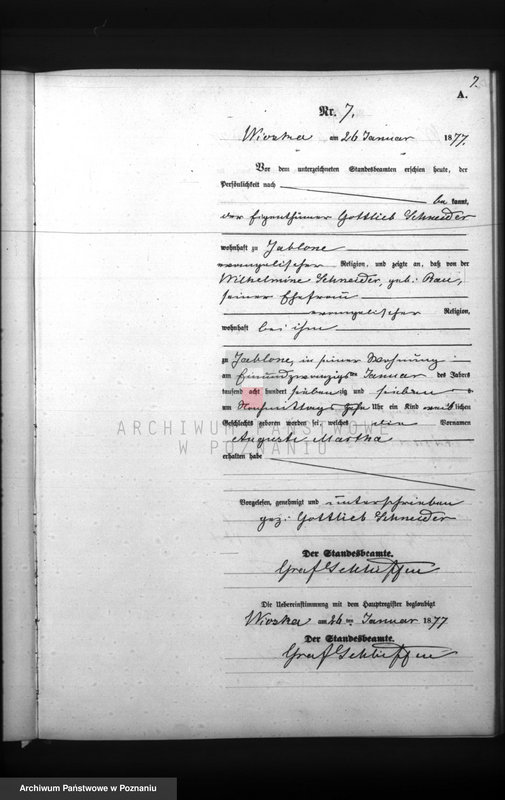 7.
A.
Nr. 7.
Wioska am 26 Januar 1877.
Vor dem unterzeichneten Standesbeamten erschien heute, der
Persönlichkeit nach
be kannt,
der Eigenthümer Gottlieb Schneider
wohnhaft zu Jablone
evangelischer Religion, und zeigte an, daß von der
Wilhelmine Schneider, geb.
seiner Ehefrau
evangelischer Religion,
wohnhaft bei ihm
zu Jablone, in seiner Wohnung
am Einundzwanzigsten Januar des Jahres
tausend acht hundert sieben zig und sieben
um Nachmittags Uhr ein Kind weib lichen
Geschlechts geboren worden sei, welches die Vornamen
Auguste Martha
erhalten habe
ARCHIWUM PAŃSTWOWE
W POZNANIU
Vorgelesen, genehmigt und unterschrieben
gez: Gottlieb Schneider
Der Standesbeamte.
Graf Schlieffen
Die Uebereinstimmung mit dem Hauptregister beglaubigt
Wioska am 26 ten Januar 1877
Der Standesbeamte.
Graf Schlieffen
Archiwum Państwowe w Poznaniu